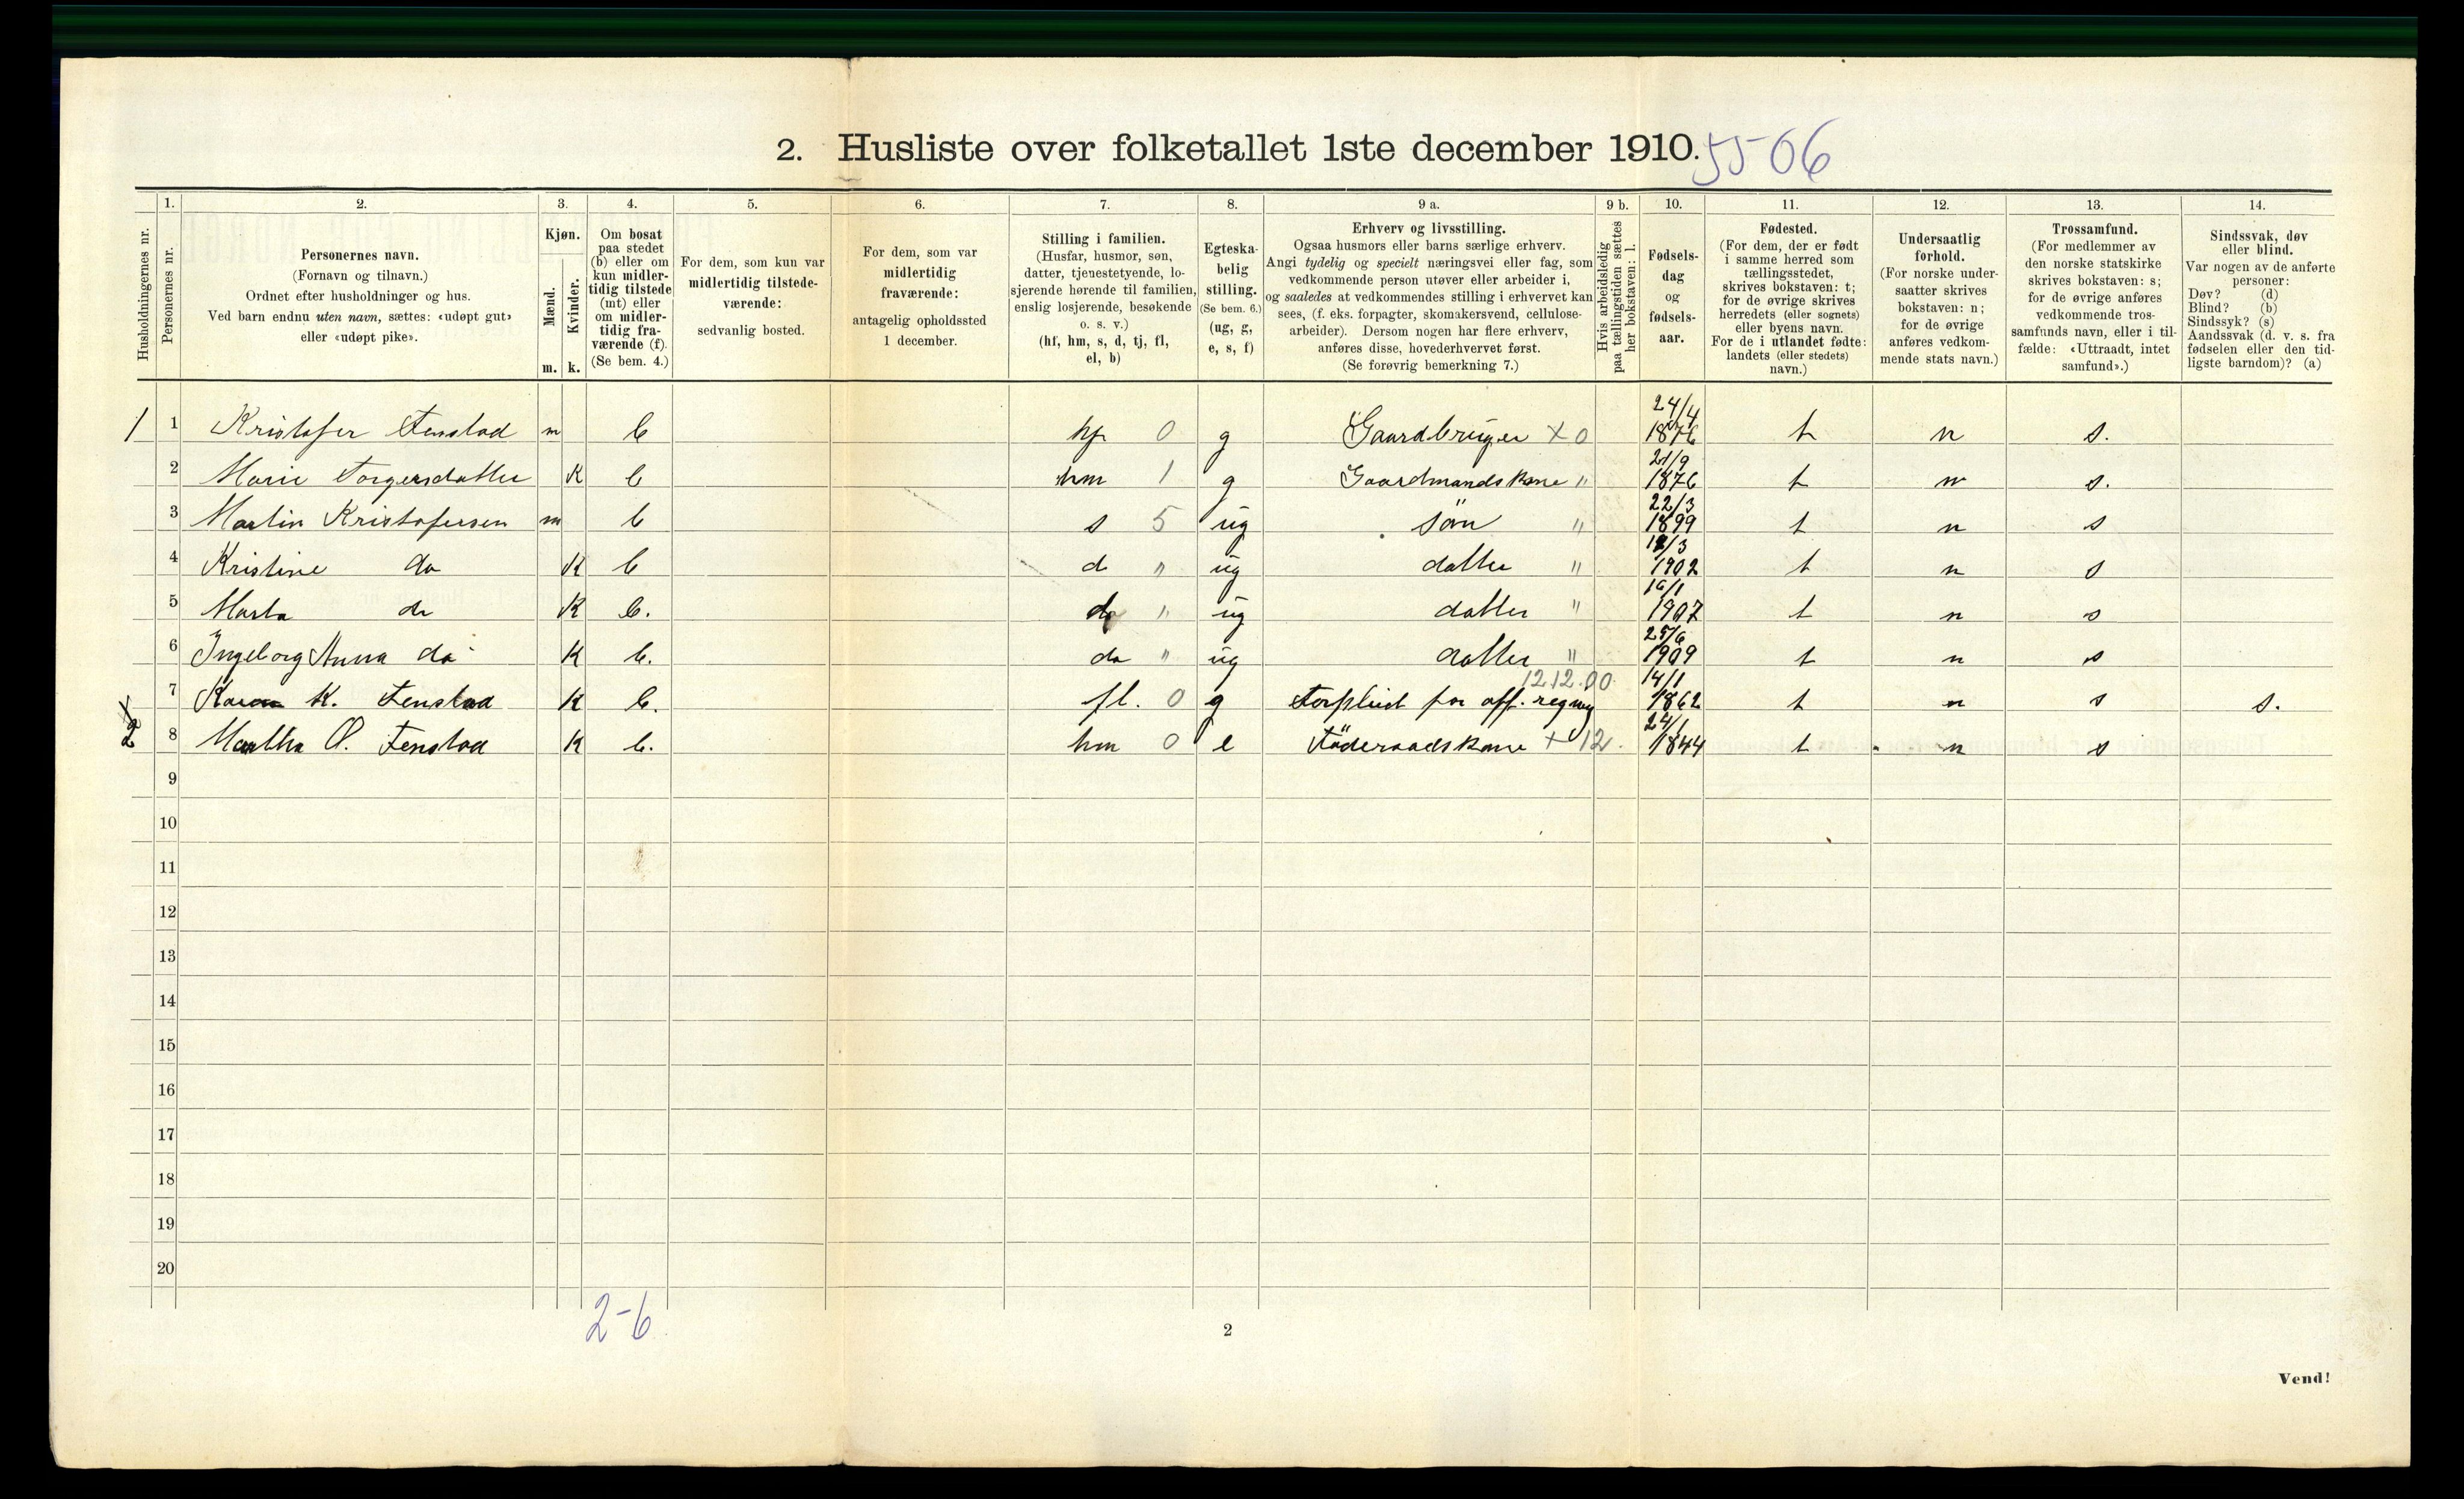 2. Husliste over folketallet 1ste december 1910. 5506
Husholdningernes nr.
1. Personernes nr.
2. Personernes navn.
(Fornavn og tilnavn.)
Ordnet efter husholdninger og hus.
Ved barn endnu uten navn, sættes: «udøpt gut»
eller «udøpt pike».
3. Kjøn.
Mænd. m.
Kvinder. k.
4. Om bosat
paa stedet
(b) eller om
kun midler-
tidig tilstede
(mt) eller
om midler-
tidig fra-
værende (f).
(Se bem. 4.)
5. For dem, som kun var
midlertidig tilstede-
værende:
sedvanlig bosted.
6. For dem, som var
midlertidig
fraværende:
antagelig opholdssted
1 december.
7. Stilling i familien.
(Husfar, husmor, søn,
datter, tjenestetyende, lo-
sjerende hørende til familien,
enslig losjerende, besøkende
o. s. v.)
(hf, hm, s, d, tj, fl,
el, b)
8. Egteska-
belig
stilling.
(Se bem. 6.)
(ug, g,
e, s, f)
9 a. Erhverv og livsstilling.
Ogsaa husmors eller barns særlige erhverv.
Angi tydelig og specielt næringsvei eller fag, som
vedkommende person utøver eller arbeider i,
og saaledes at vedkommendes stilling i erhvervet kan
sees, (f. eks. forpagter, skomakersvend, cellulose-
arbeider). Dersom nogen har flere erhverv,
anføres disse, hovederhvervet først.
(Se forøvrig bemerkning 7.)
9 b. Hvis arbeidsledig
paa tællingstiden sættes
her bokstaven: l.
10. Fødsels-
dag
og
fødsels-
aar.
11. Fødested.
(For dem, der er født
i samme herred som
tællingsstedet,
skrives bokstaven: t;
for de øvrige skrives
herredets (eller sognets)
eller byens navn.
For de i utlandet fødte:
landets (eller stedets)
navn.)
12. Undersaatlig
forhold.
(For norske under-
saatter skrives
bokstaven: n;
for de øvrige
anføres vedkom-
mende stats navn.)
13. Trossamfund.
(For medlemmer av
den norske statskirke
skrives bokstaven: s;
for de øvrige anføres
vedkommende tros-
samfunds navn, eller i til-
fælde: «Uttraadt, intet
samfund».)
14. Sindssvak, døv
eller blind.
Var nogen av de anførte
personer:
Døv? (d)
Blind? (b)
Sindssyk? (s)
Aandssvak (d. v. s. fra
fødselen eller den tid-
ligste barndom)? (a)
1 1 Kristofer Fenstad m b hf 0 g Gaardbruger x 0 24/4 1876 t n s.
2 Marie Torgersdatter K b hm 1 g Gaardmandskone " 21/9 1876 t n s.
3 Martin Kristofersen m b s 5 ug søn " 22/3 1899 t n s
4 Kristine do K b d " ug datter " 12/3 1902 t n s
5 Marta do K b. d " ug datter " 16/1 1907 t n s
6 Ingeborg Anna do K b. do " ug datter " 25/6 1909 t n s
7 Karen K. Fenstad K b. fl. 0 g Forpleiet for off. regning 12.12.00. 14/1 1862 t n s s.
2 8 Martha O. Fenstad K b. hm 0 e Føderaadskone + 12. 24/1 1844 t n s
9
10
11
12
13
14
15
16
17
18
19
20
2-6
2
Vend!